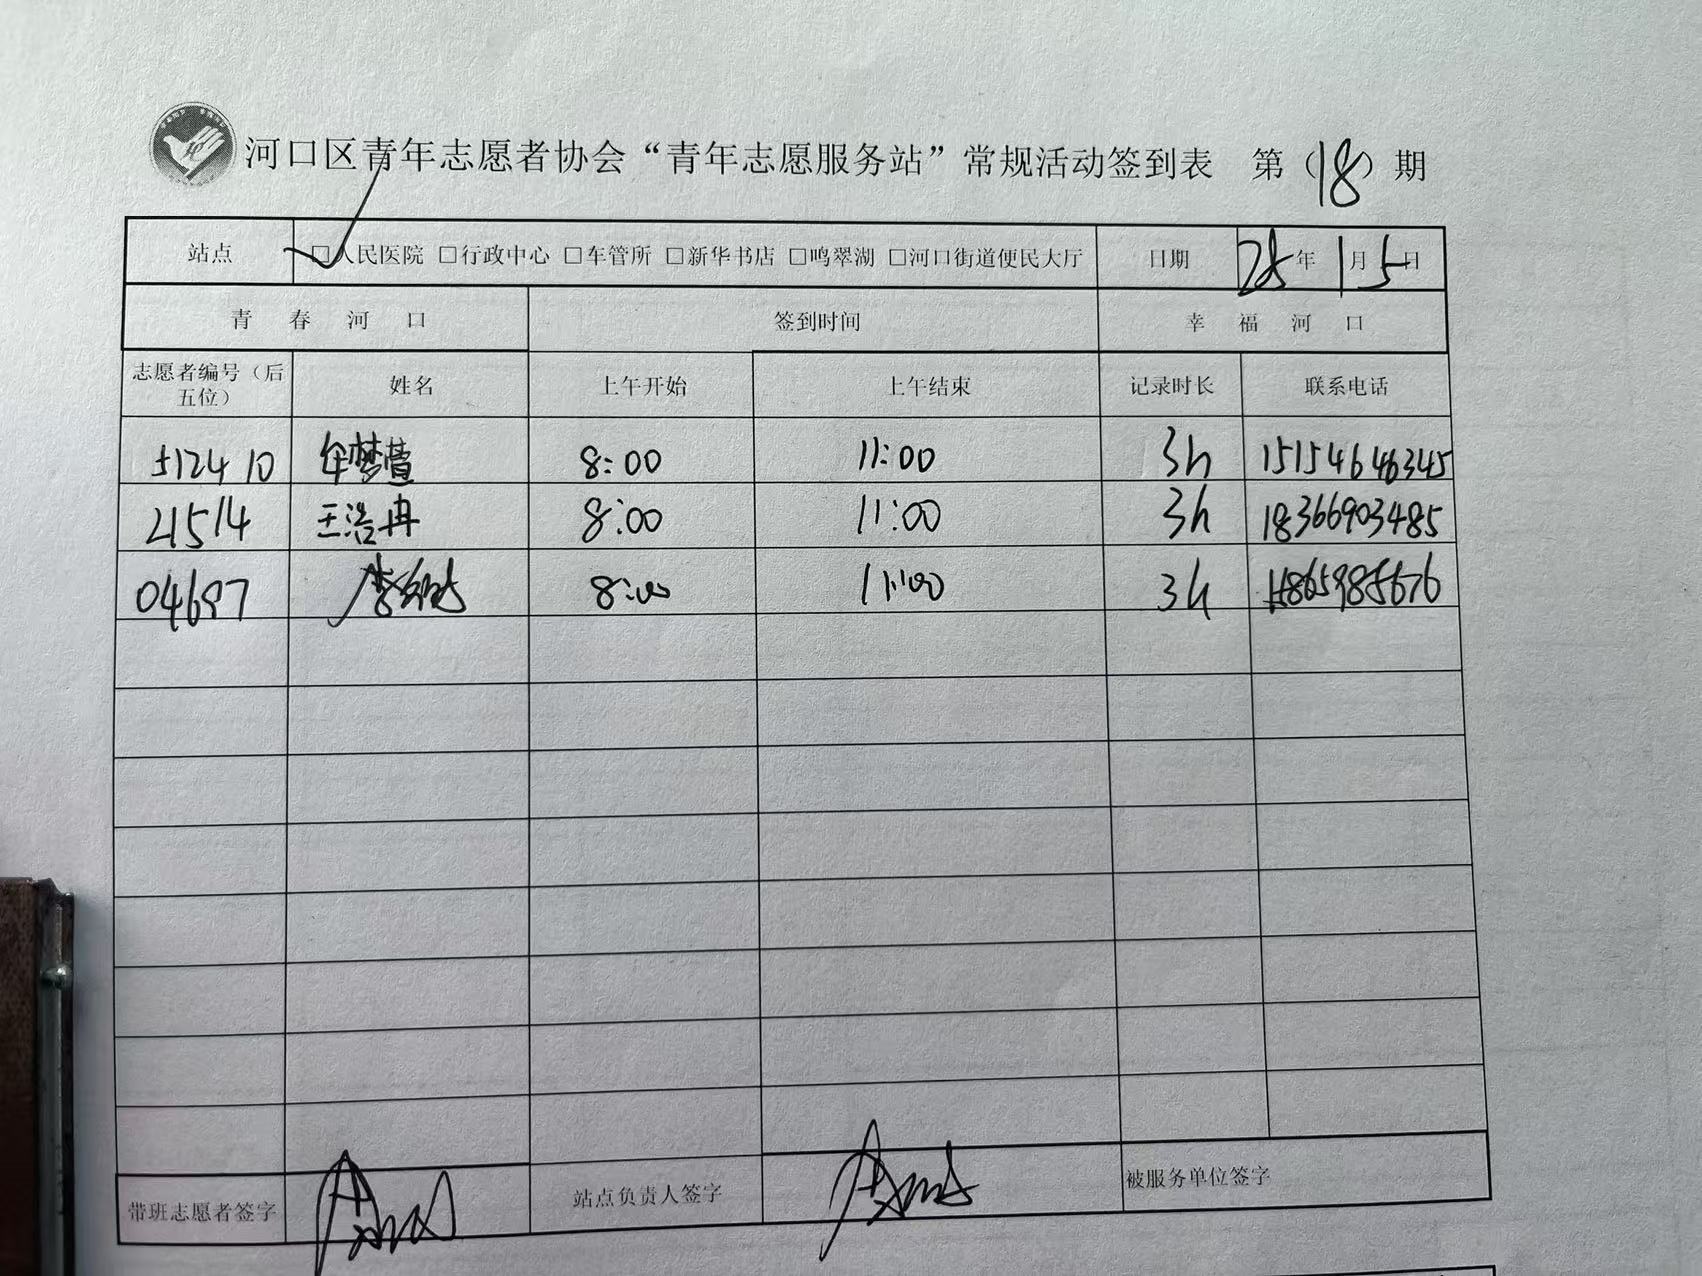 河口区青年志愿者协会“青年志愿服务站”常规活动签到表 第（18）期
站点 □人民医院 □行政中心 □车管所 □新华书店 □鸣翠湖 □河口街道便民大厅 日期 25年1月5日
青春河口 签到时间 幸福河口
志愿者编号（后五位） 姓名 上午开始 上午结束 记录时长 联系电话
512410 牟梦萱 8:00 11:00 3h 15154646345
21514 王浩冉 8:00 11:00 3h 18366903485
04697 8:00 11:00 3h
带班志愿者签字 站点负责人签字 被服务单位签字